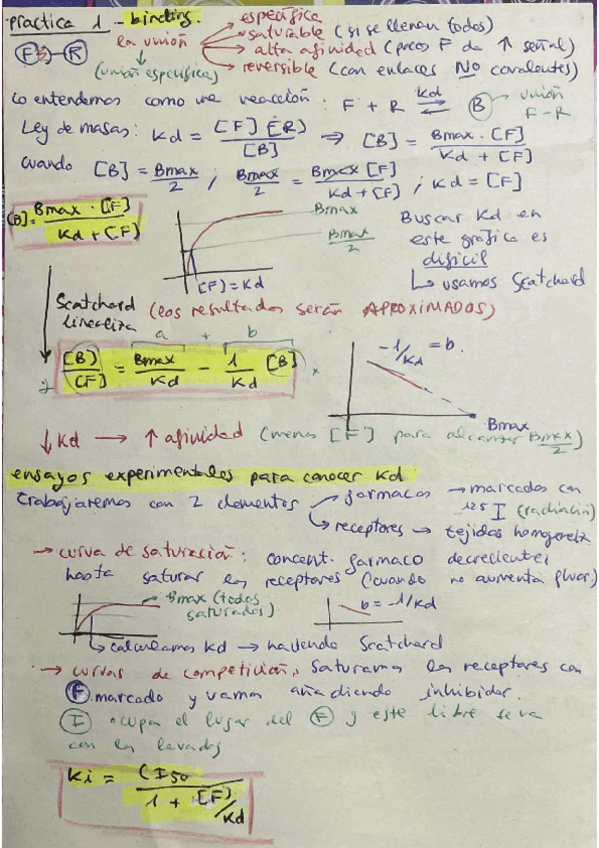 practica 1 - binding.
específica
la unión
saturable (si se llenan todos)
alta afinidad (pocos F da ↑ señal)
reversible (con enlaces NO covalentes)
F R
(unión específica)
Lo entendemos como una reacción: F + R ⇌ B
Kd
unión
F-R
Ley de masas: Kd = [F] [R] / [B] ⇒ [B] = Bmax · [F] / Kd + [F]
cuando [B] = Bmax / 2 ; Bmax / 2 = Bmax [F] / Kd + [F] ; Kd = [F]
[B] = Bmax · [F] / Kd + [F]
Bmax
Bmax / 2
[F] = Kd
Buscar Kd en
este gráfica es
difícil
↳ usamos Scatchard
Scatchard
linealiza
(los resultados serán APROXIMADOS)
a + b
y [B] / [F] = Bmax / Kd - 1 / Kd [B] x
-1/Kd = b
Bmax
↓ Kd → ↑ afinidad (menos [F] para alcanzar Bmax / 2)
ensayos experimentales para conocer Kd
trabajaremos con 2 elementos
farmacos → marcados con
125 I (radiación)
receptores → tejidos homogeneiz
→ curva de saturación: concent. farmaco decrecientes
hasta saturar los receptores (cuando no aumenta fluor.)
Bmax (todos
saturados)
b = -1/Kd
↳ calculamos Kd → haciendo Scatchard
→ curvas de competición, saturamos los receptores con
F marcado y vamos añadiendo inhibidor.
I ocupa el lugar del F y este libre se va
con los lavados
Ki = CI50 / 1 + [F]/Kd